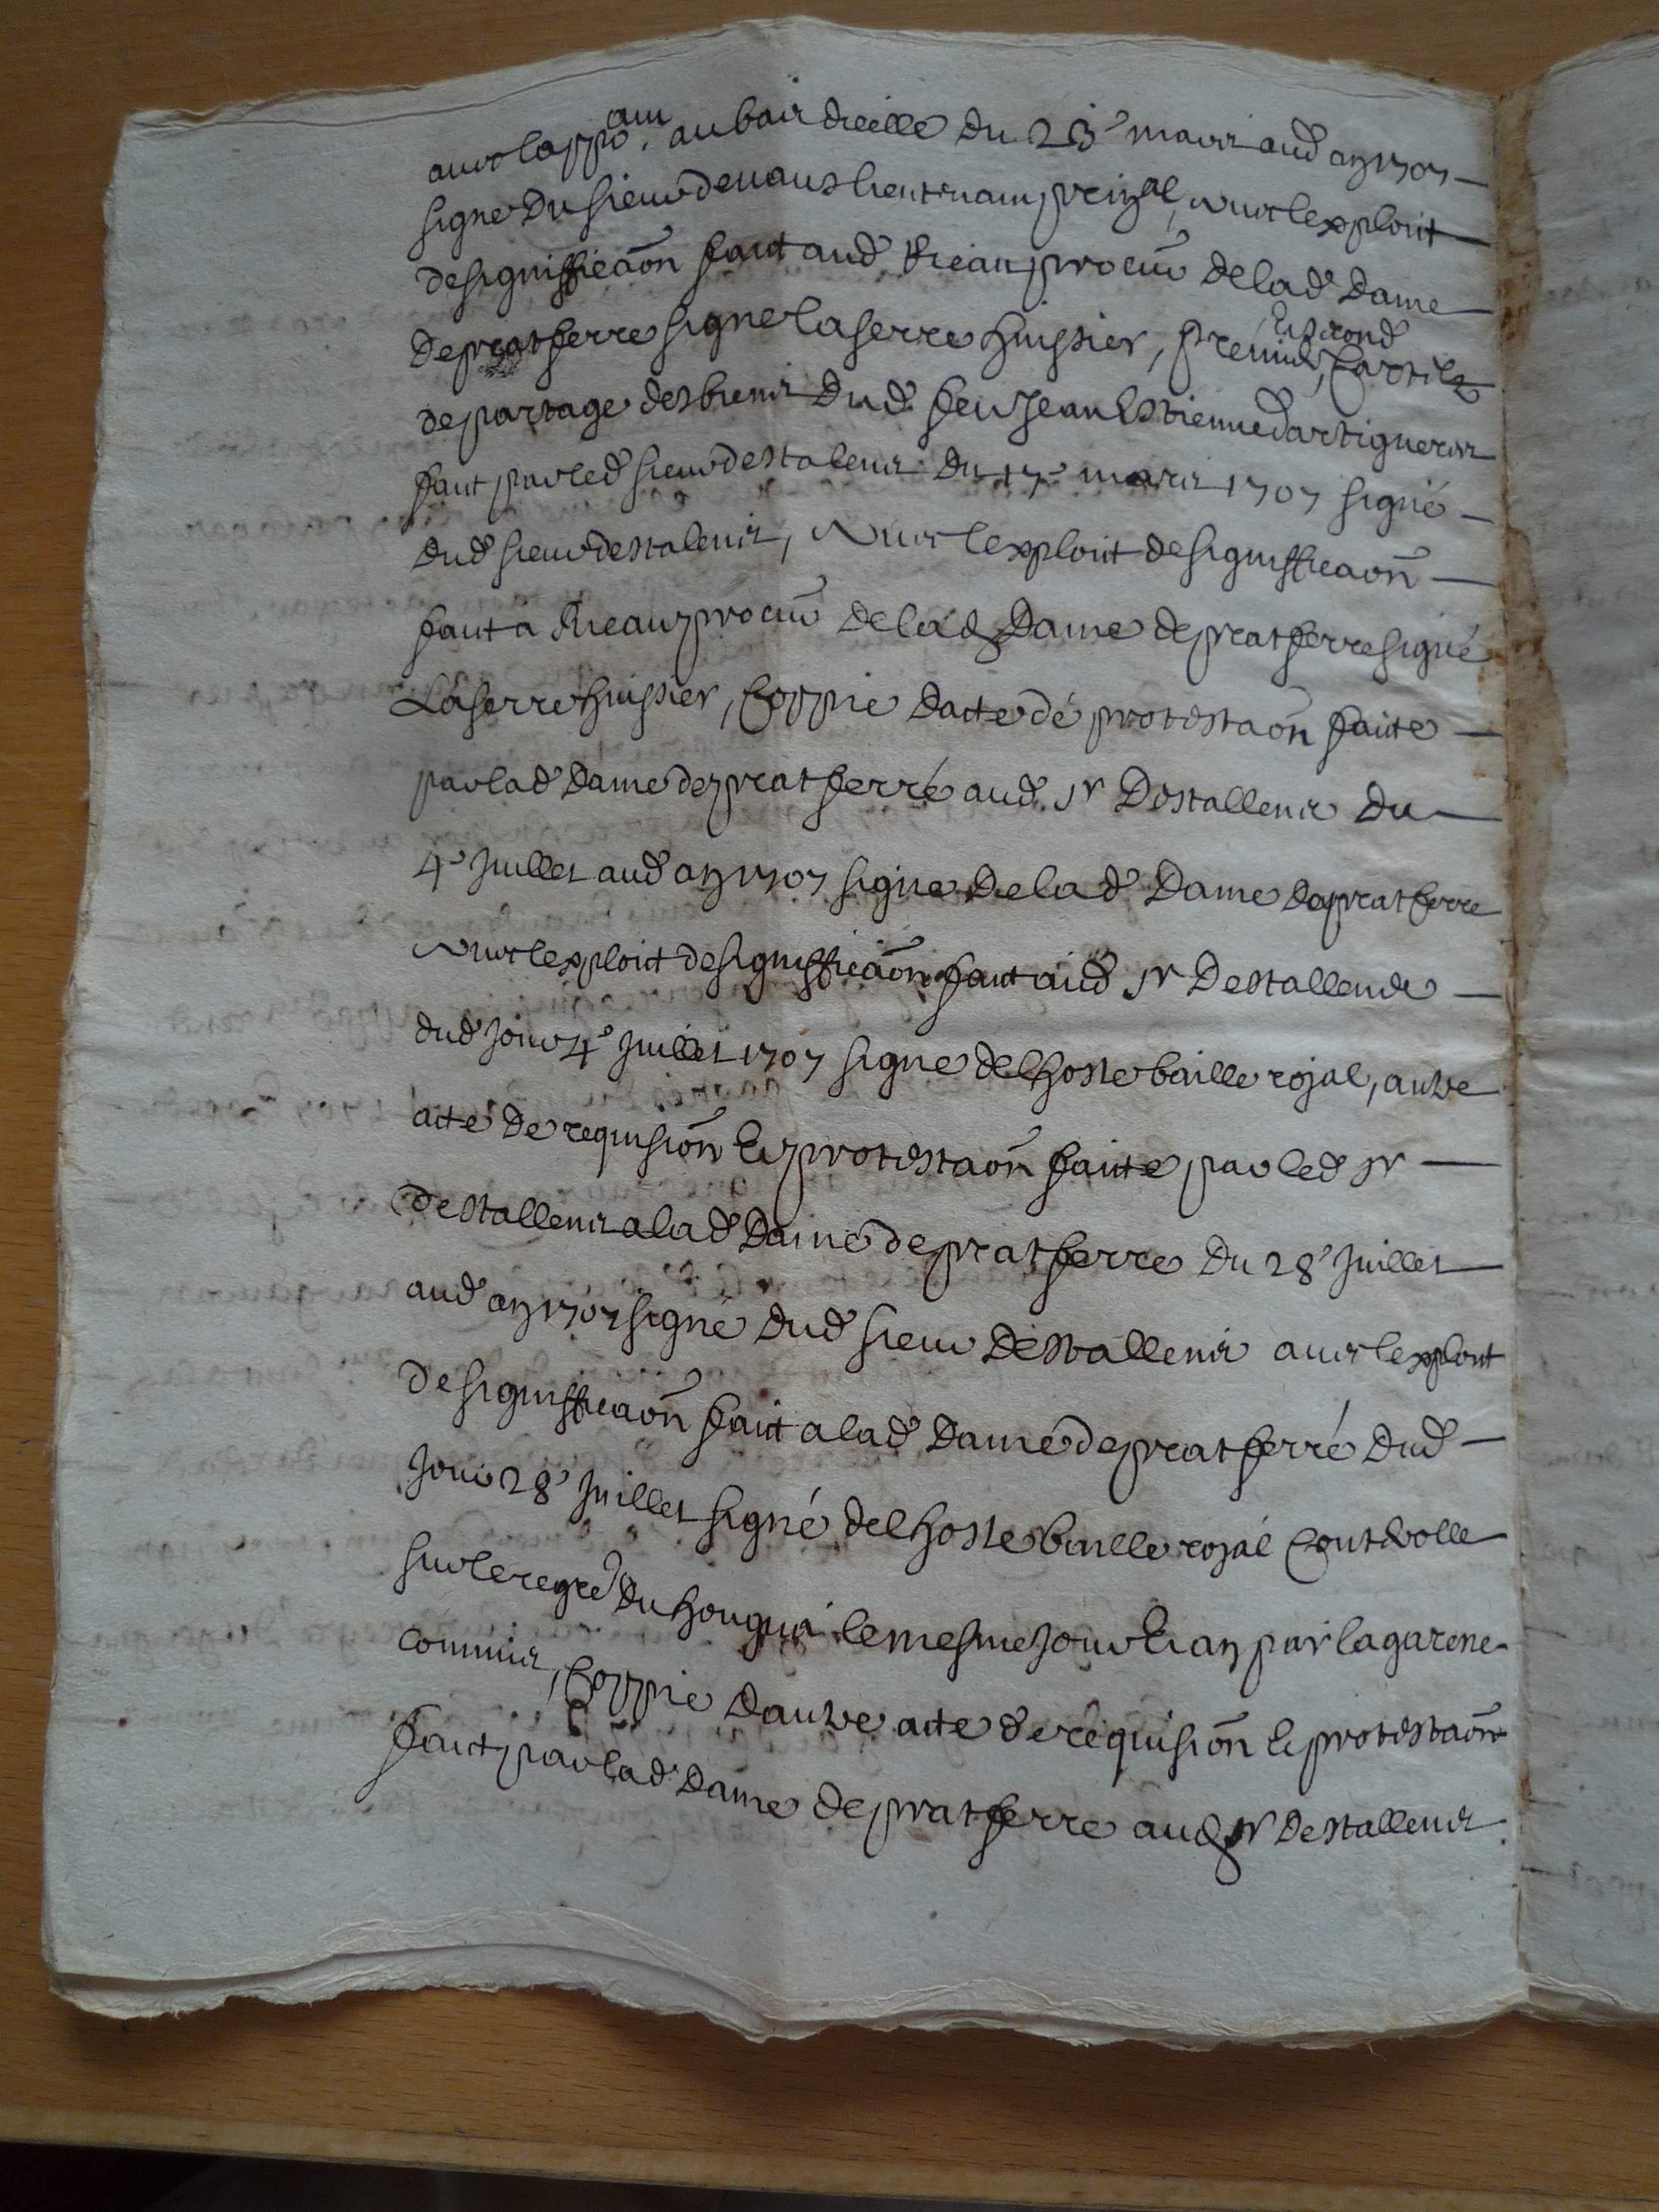 avec lappo.am au bais dicelle du 23e mars aud an 1707
signe du sieur devaus lieutenam prinpal, avec lexploit
de signifficaon fait aud Rieau procur de lad dame
de pratferre signe Laserre huissier, premier et second cartels
de partage des biens dud feu Jean Estienne dartigueres
fait par led sieur destalens du 17e mars 1707 signé
dud sieur destalens, avec lexploit de signifficaon
fait a Rieau procur de lad dame de pratferre signé
Laserre huissier, Coppie dacte de protestaon faite
par lad dame de pratferré aud sr Destallens du
4e Juillet aud an 1707 signe de lad dame de pratferre
avec lexploit de signifficaon fait aud sr Destallens
dud jour 4e Juillet 1707 signe delhoste baille royal, autre
acte de requision et protestaon faite par led sr
destallens a lad dame de pratferre du 28e Juillet
aud an 1707 signé dud sieur Destallens avec lexploit
de signifficaon fait a lad dame de pratferré dud
jour 28e Juillet signé delhoste baille royal Controlle
sur le regre du le mesme jour et an par lagarene
commis, Coppie dautre acte de requision et protestaon
fait par lad dame de pratferre aud sr destallens